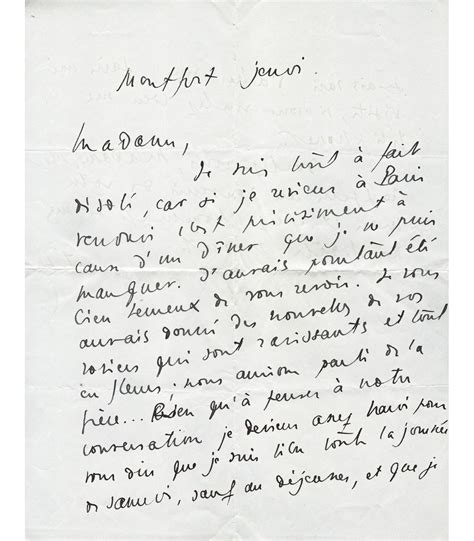 Montfort jeudi.
Madame,
Je suis tout à fait
désolé, car si je reviens à Paris
c'est précisément à
cause d'un dîner que je ne puis
manquer. J'aurais pourtant été
bien heureux de vous revoir. Je vous
aurais donné des nouvelles de vos
rosiers qui sont ravissants et tout
en fleurs; nous aurions parlé de la
pièce... Rien qu'à penser à notre
conversation je deviens assez hardi pour
vous dire que je suis libre toute la journée
de samedi, sauf au déjeuner, et que je